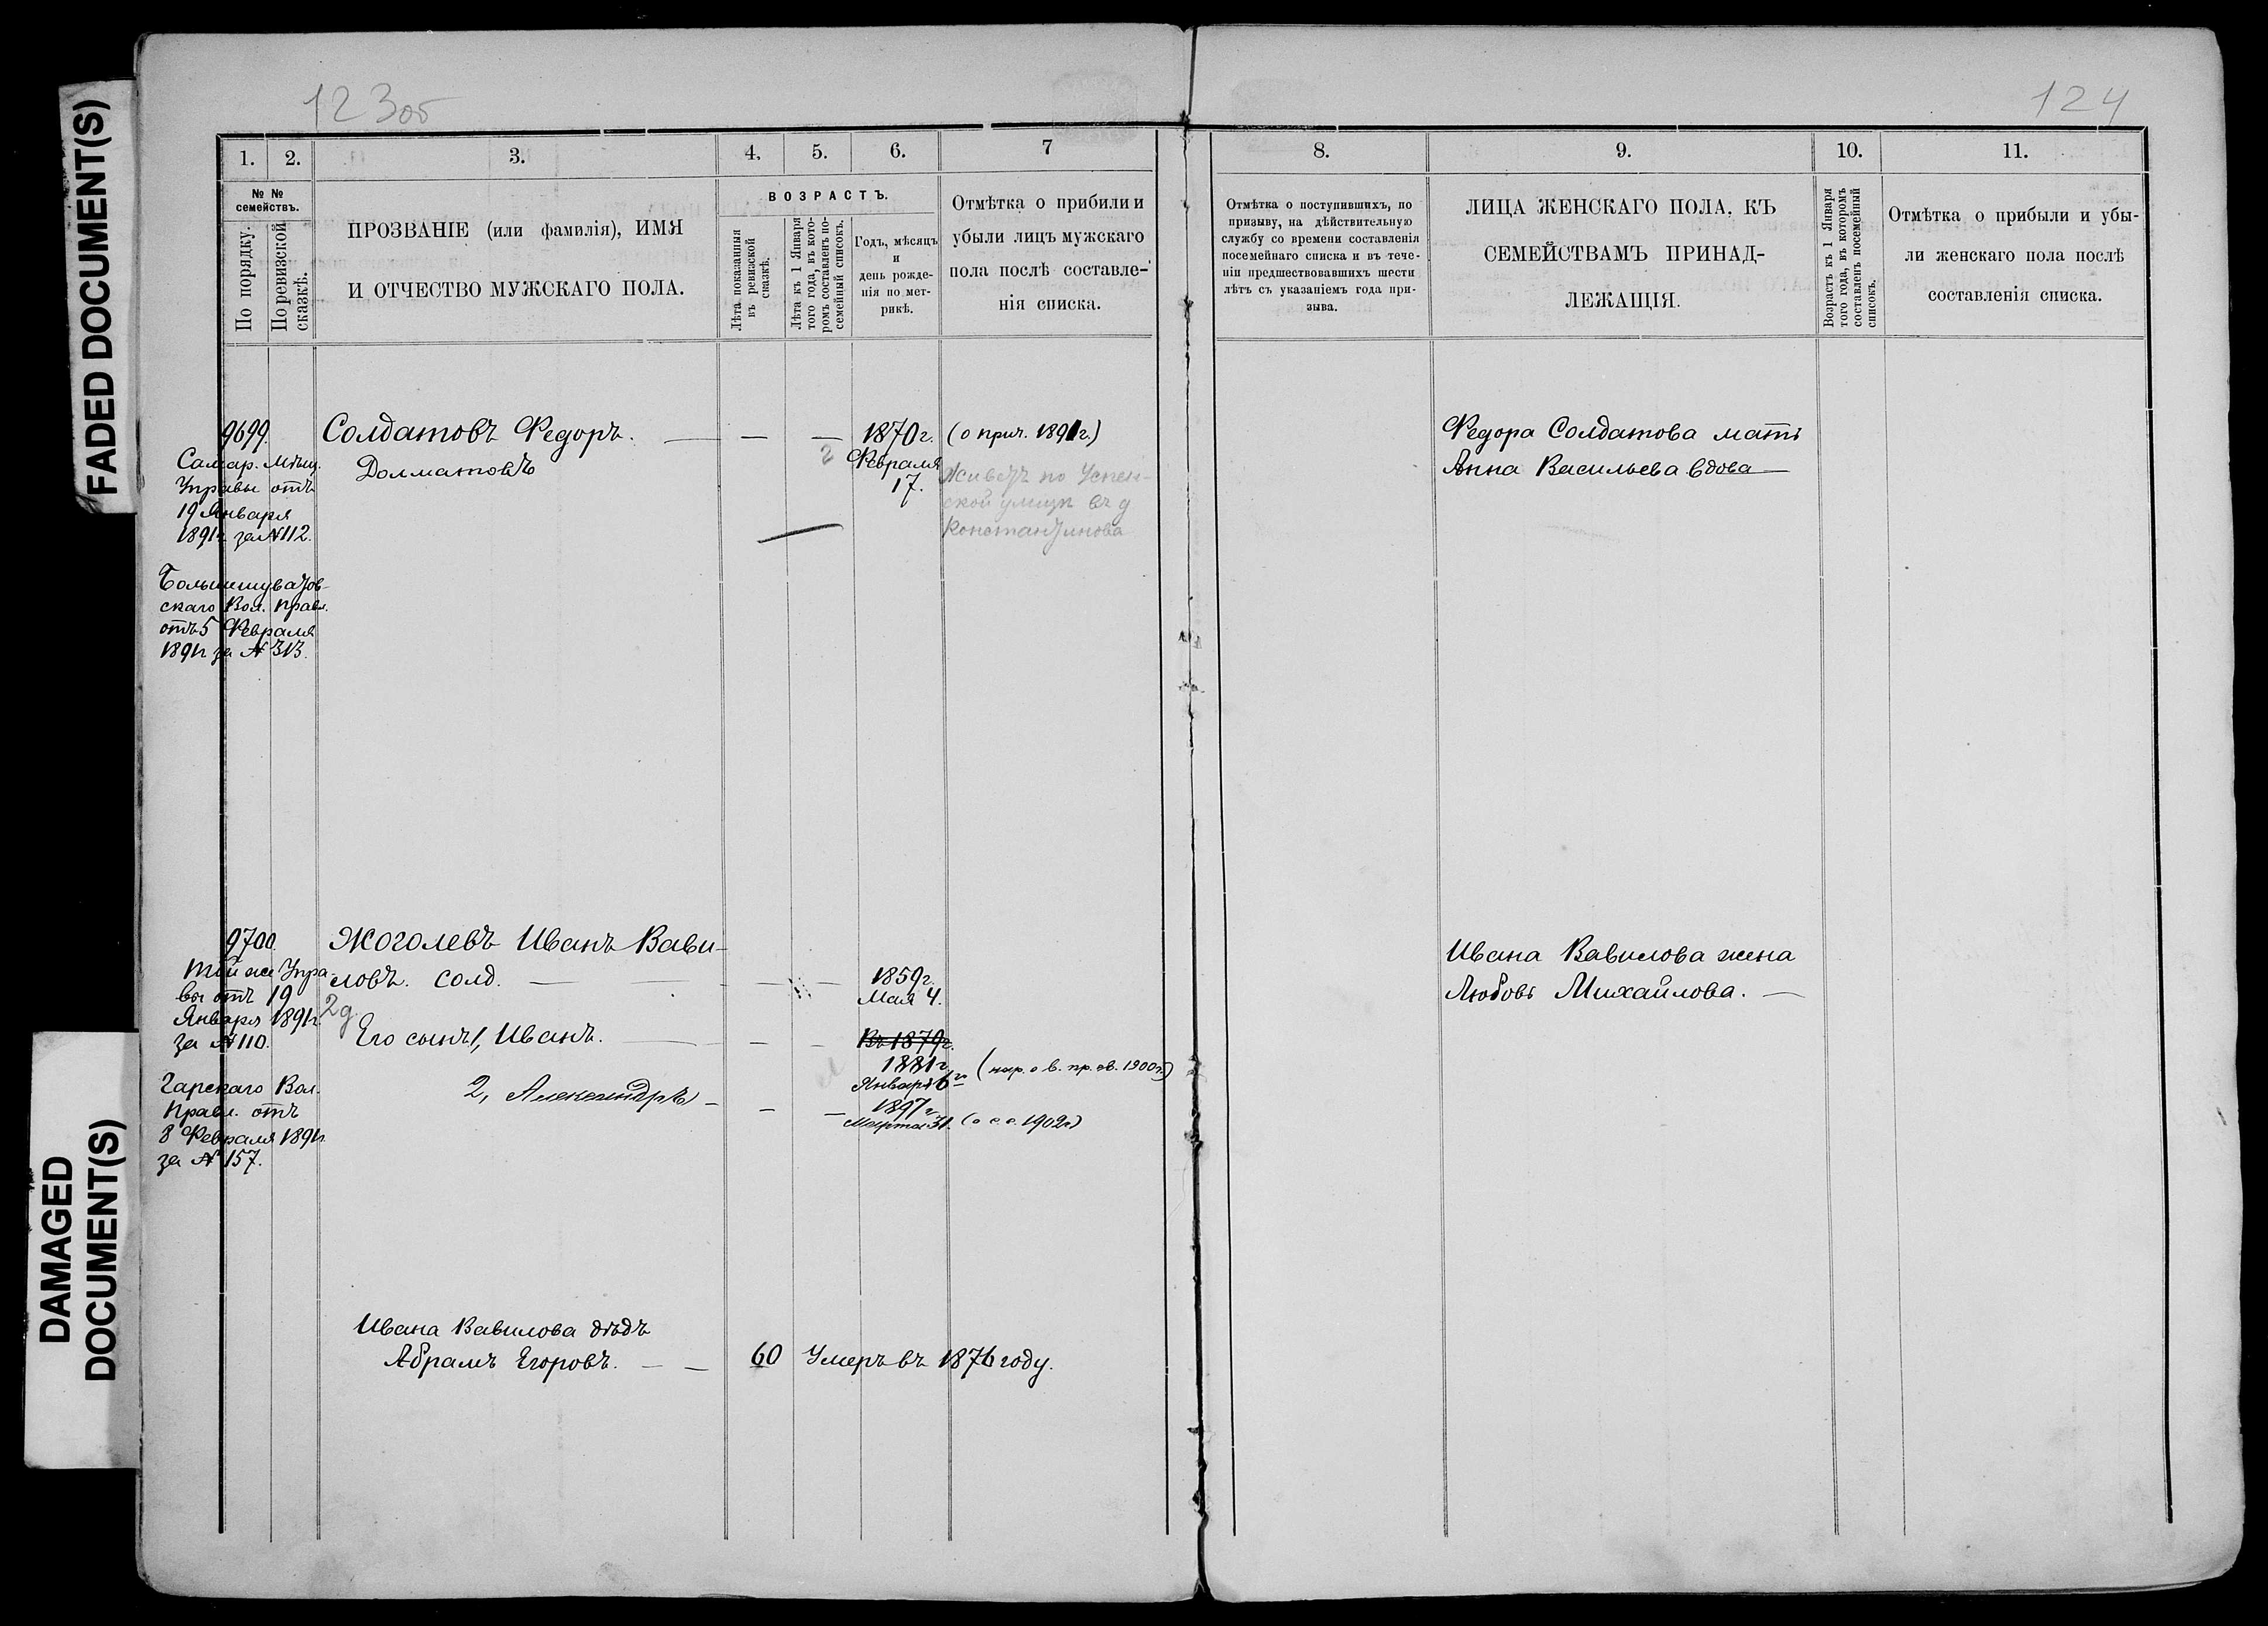 FADED DOCUMENT(S)
DAMAGED
DOCUMENT(S)
123об
1.
2.
3.
4.
5.
6.
7
№ №
семействъ.
По порядку.
По ревизской
сказкѣ.
ПРОЗВАНІЕ (или фамилія), ИМЯ
И ОТЧЕСТВО МУЖСКАГО ПОЛА.
ВОЗРАСТЪ.
Лѣта показанныя
въ ревизской
сказкѣ.
Лѣта къ 1 Января
того года, въ кото-
ромъ составленъ по-
семейный списокъ.
Годъ, мѣсяцъ
и
день рожде-
нія по мет-
рикѣ.
Отмѣтка о прибыли и
убыли лицъ мужскаго
пола послѣ составле-
нія списка.
9699.
Самар. Мѣщ.
Управы отъ
19 Января
1891г за №112.
Большешуватов-
скаго Вол. Правл.
отъ 5 Февраля
1891г за № 313.
Солдатовъ Федоръ. — — —
Долматовъ
1870г.
Февраля
17.
(о прич. 1891г.)
Живетъ по Успен-
ской улицѣ въ д
Константинова
9700.
Той же Упра-
вы отъ 19
Января 1891г.
за №110.
Чарскаго Вол.
Правл. отъ
8 Февраля 1891г.
за № 157.
Жоголевъ Иванъ Вави-
ловъ. солд. — — — —
1859г.
Мая 4.
2д.
Его сынъ 1, Иванъ. — — —
Въ 1879г.
1881г.
Января 6го
(нар. о в. пр. св. 1900г.)
2, Александръ — — —
1897г.
Марта 31.
(о с.с. 1902г)
Ивана Вавилова дѣдъ
Абрамъ Егоровъ. — — 60 Умеръ въ 1876 году.
124
8.
9.
10.
11.
Отмѣтка о поступившихъ, по
призыву, на дѣйствительную
службу со времени составленія
посемейнаго списка и въ тече-
ніи предшествовавшихъ шести
лѣтъ съ указаніемъ года при-
зыва.
ЛИЦА ЖЕНСКАГО ПОЛА, КЪ
СЕМЕЙСТВАМЪ ПРИНАД-
ЛЕЖАЩІЯ.
Возрастъ къ 1 Января
того года, въ которомъ
составленъ посемейный
списокъ.
Отмѣтка о прибыли и убы-
ли женскаго пола послѣ
составленія списка.
Федора Солдатова мать
Анна Васильева вдова —
Ивана Вавилова жена
Любовь Михайлова. —